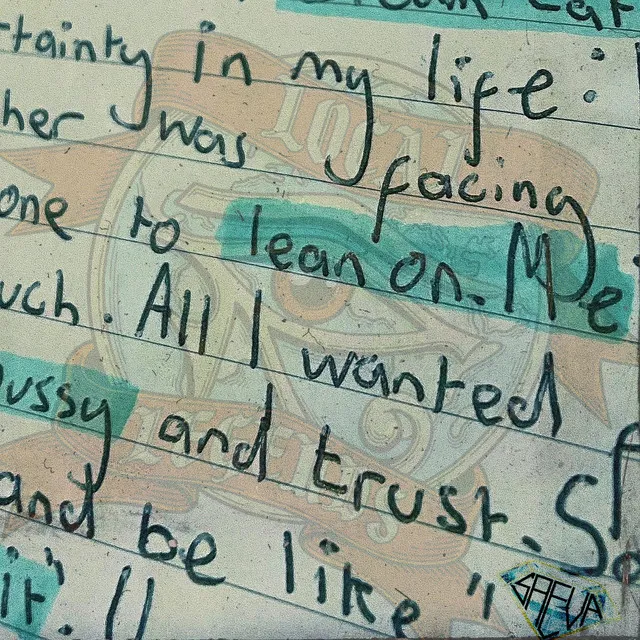 tainty in my life :
her was facing
one to lean on. Me
uch. All I wanted
ussy and trust. So
and be like "
it".
LOCAL
LEGENDS